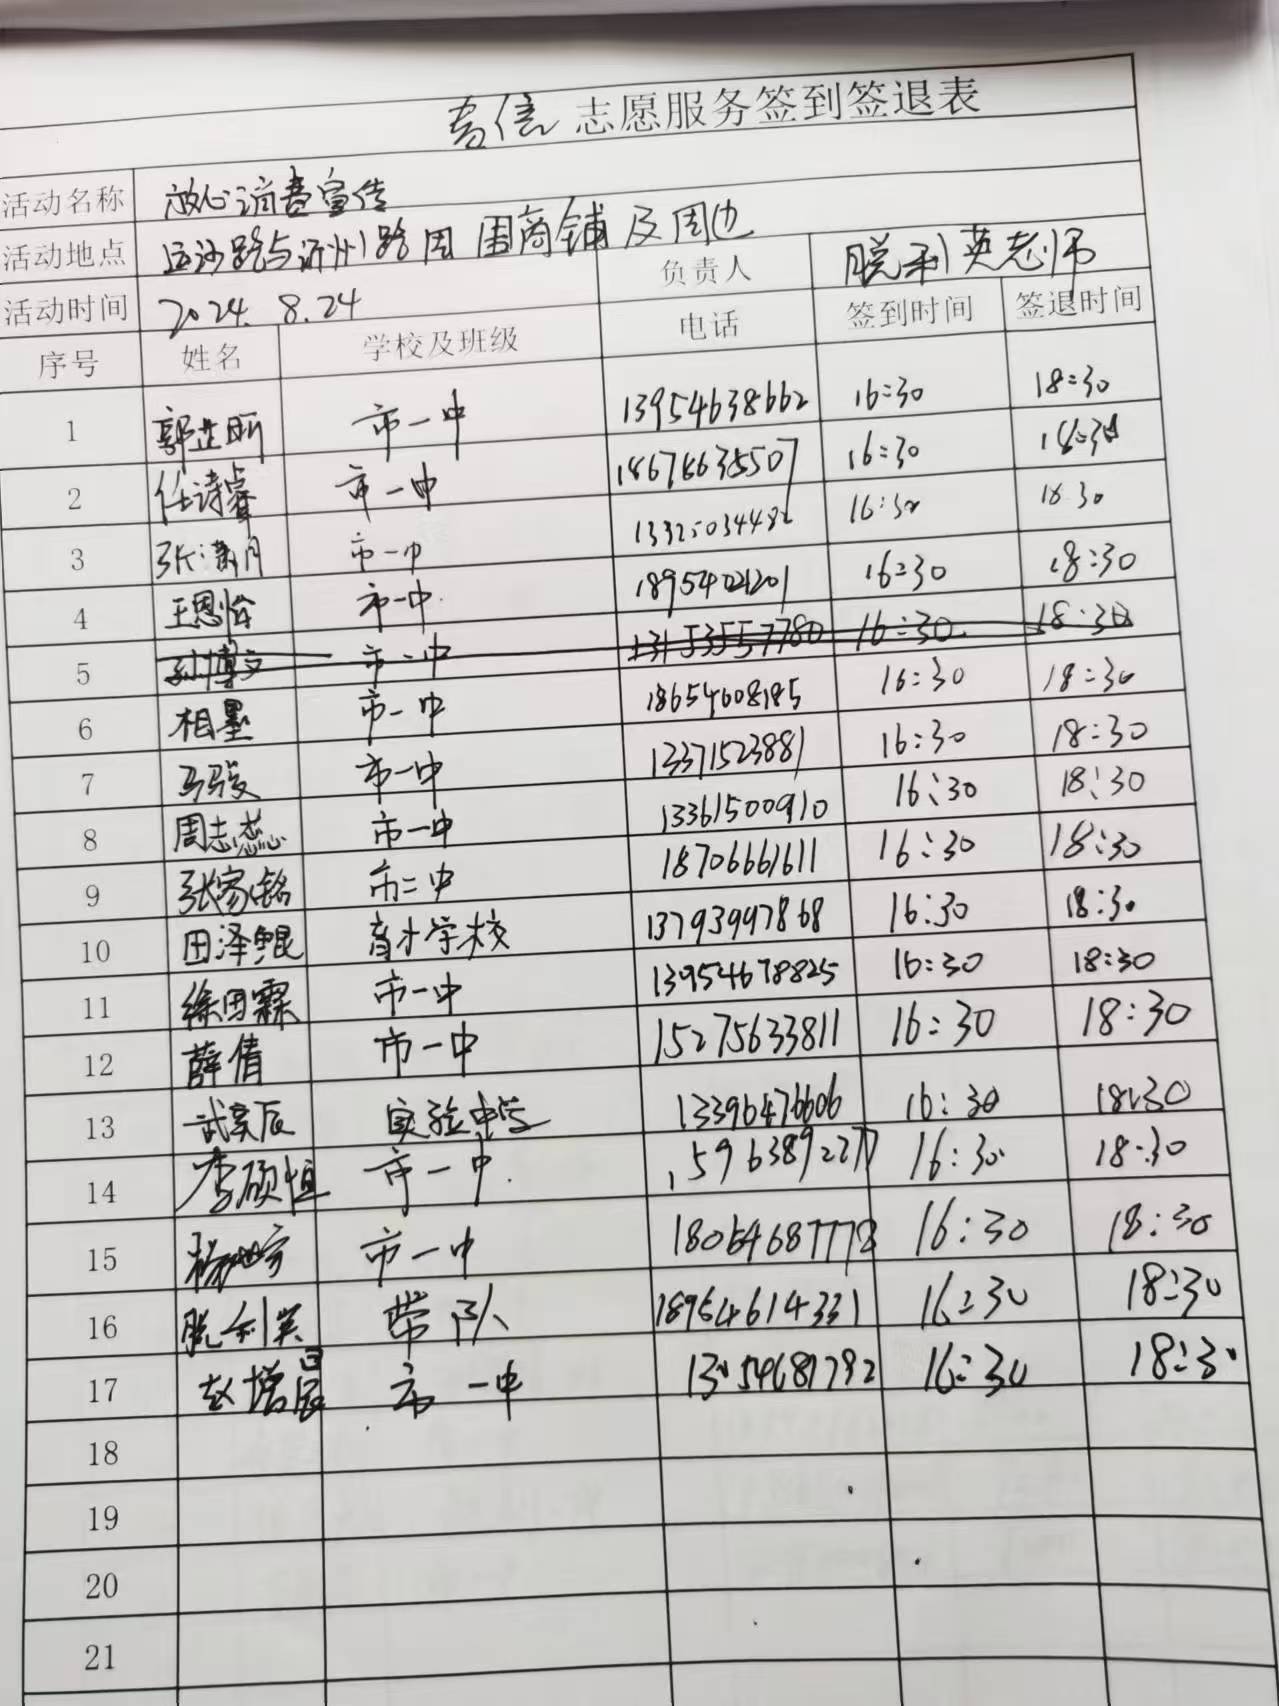 志愿服务签到签退表
活动名称 放心消费宣传
活动地点 路与沂州路周围商铺及周边
活动时间 2024.8.24 负责人 脱利英老师
序号 姓名 学校及班级 电话 签到时间 签退时间
1 郭芷昕 市一中 13954638662 16:30 18:30
2 任诗睿 市一中 16:30 18:30
3 张潇月 市一中 13325034482 16:30 18:30
4 王恩怡 市一中 18954021201 16:30 18:30
5 孙博文 市一中 16:30 18:30
6 相墨 市一中 18654608185 16:30 18:30
7 马骏 市一中 13371523881 16:30 18:30
8 周志蕊 市一中 13361500910 16:30 18:30
9 张家铭 市二中 18706661611 16:30 18:30
10 田泽鲲 育才学校 13793997868 16:30 18:30
11 徐田霖 市一中 13954678825 16:30 18:30
12 薛倩 市一中 15275633811 16:30 18:30
13 武奕辰 实验中学 13396476606 16:30 18:30
14 李硕恒 市一中 16:30 18:30
15 市一中 18054687778 16:30 18:30
16 脱利英 带队 18954614331 16:30 18:30
17 赵增 市一中 13054681792 16:30 18:30
18
19
20
21